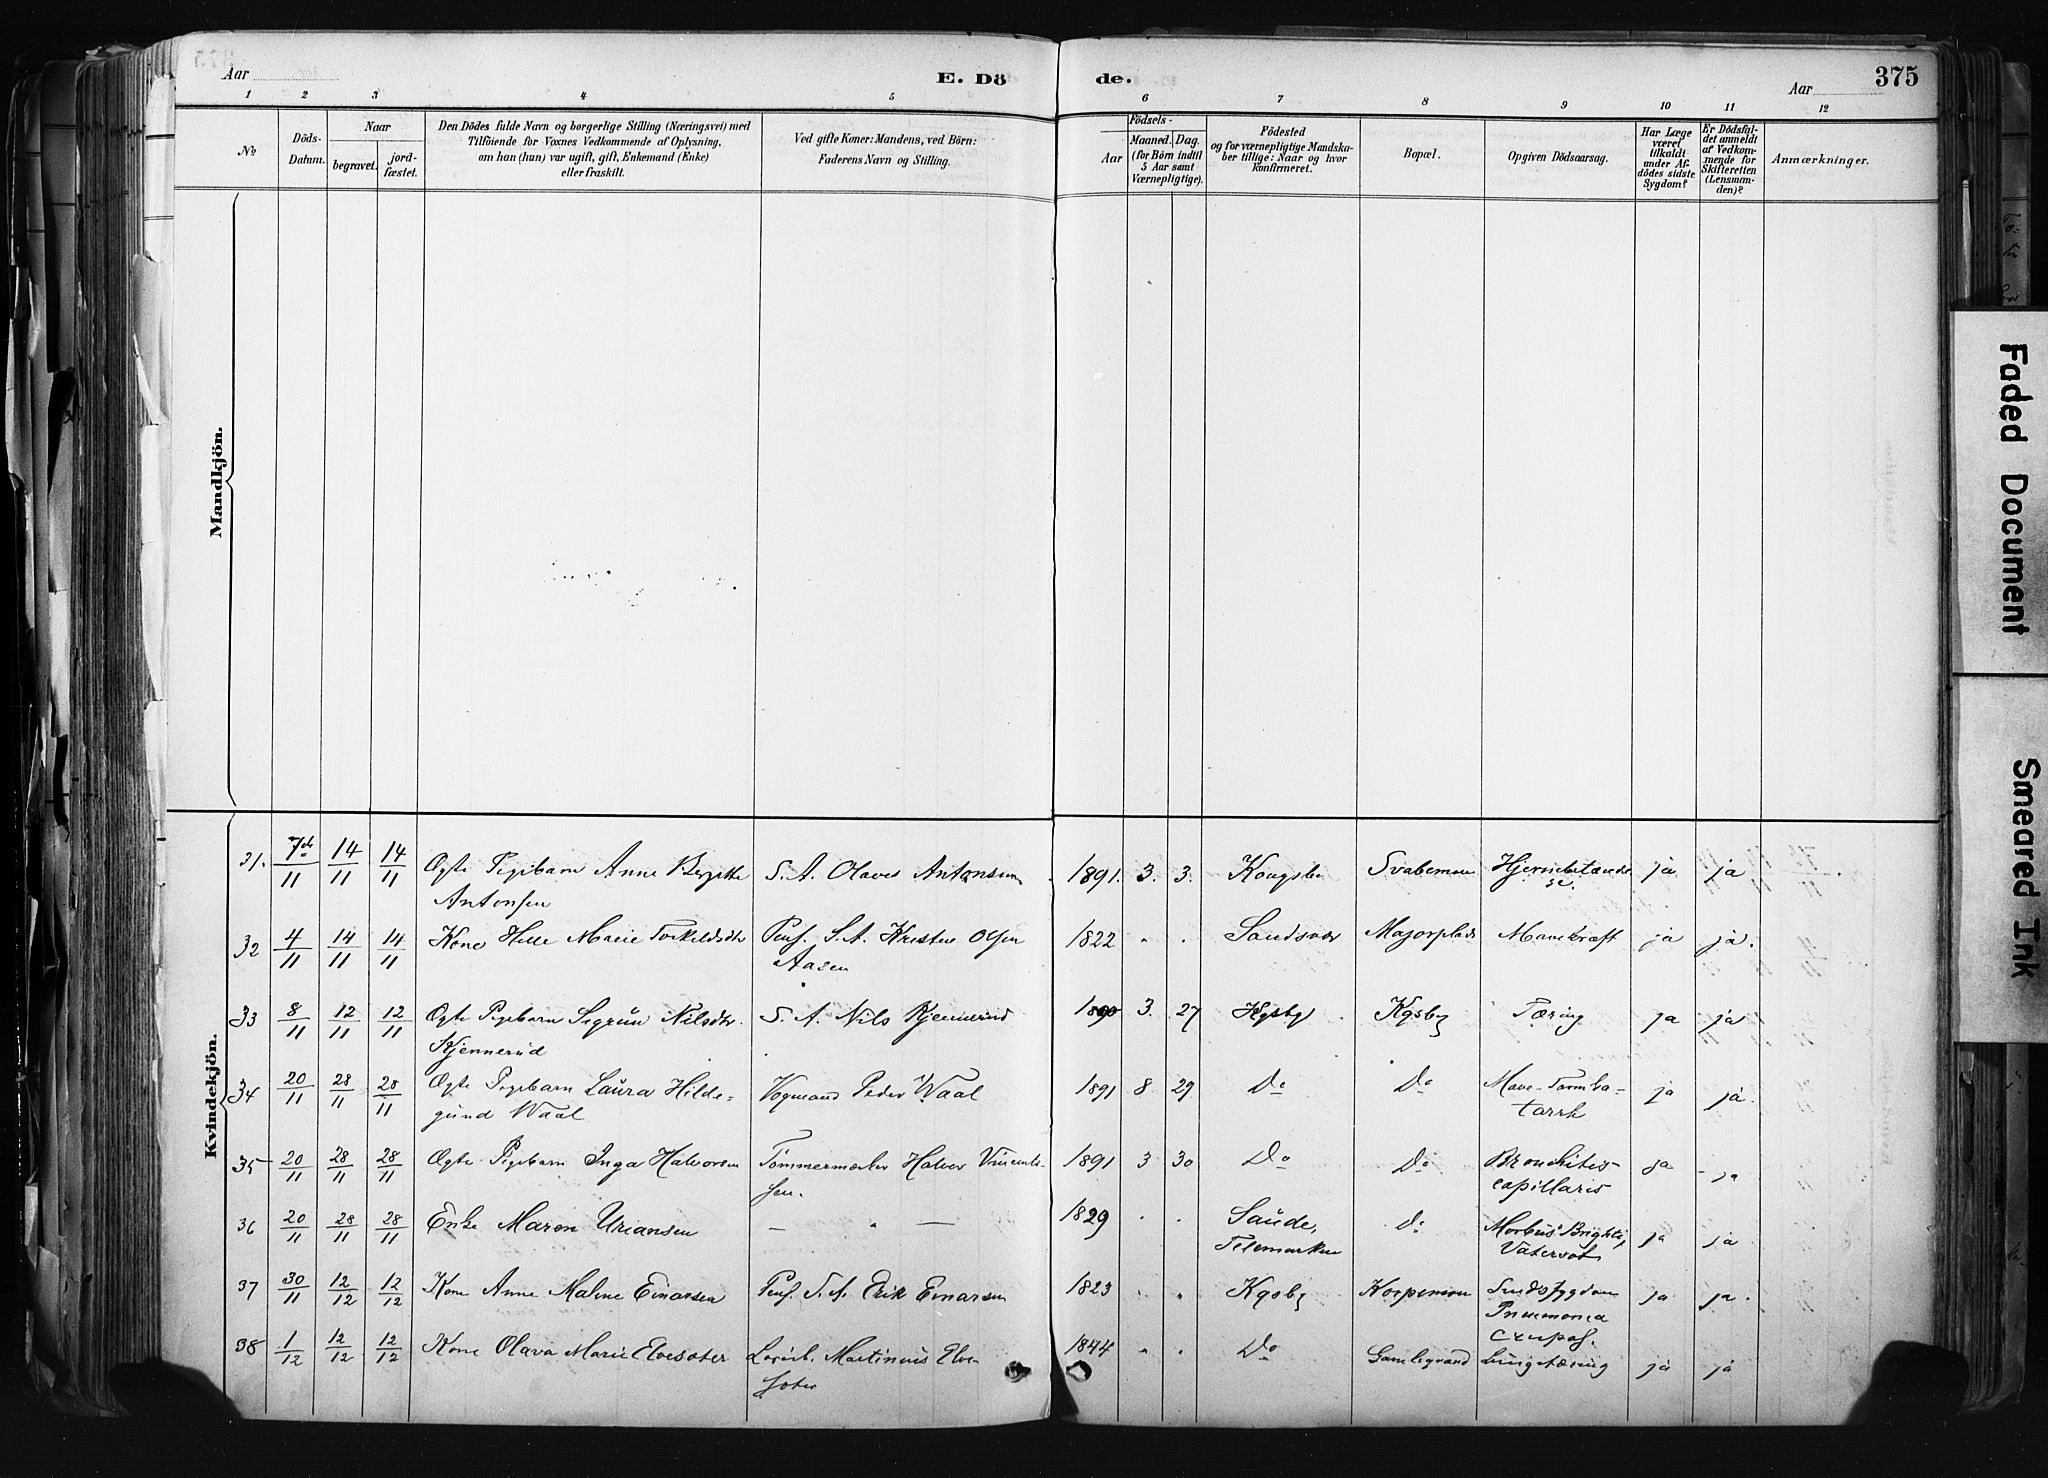 Aar
E. Dö
de.
Aar
375
1 2 3 4 5 6 7 8 9 10 11 12
No
Döds-
Datum.
Naar
begravet.
jord-
fæstet.
Den Dödes fulde Navn og borgerlige Stilling (Næringsvei) med
Tilföiende for Voxnes Vedkommende af Oplysning,
om han (hun) var ugift, gift, Enkemand (Enke)
eller fraskilt.
Ved gifte Koner: Mandens, ved Börn:
Faderens Navn og Stilling.
Födsels-
Aar
Maaned. Dag.
(for Börn indtil
5 Aar samt
Værnepligtige).
Födested
og for værnepligtige Mandska-
ber tillige: Naar og hvor
konfirmeret.
Bopæl.
Opgiven Dödsaarsag.
Har Læge
været
tilkaldt
under Af-
dödes sidste
Sygdom?
Er Dödsfal-
det anmeldt
af Vedkom-
mende for
Skifteretten
(Lensman-
den)?
Anmærkninger.
Mandkjön.
Kvindekjön.
31. 7de/11 14/11 14/11 Ægte Pigebarn Anne Bergitte S. A. Olaves Antonsen 1891. 3. 3. Kongsbg Svabemoen Hjernebetænde ja ja
Antonsen
se.
32 4/11 14/11 14/11 Kone Helle Marie Torkeldsdtr Pens. S. A. Kristen Olsen 1822 " " Sandsvær Majorplads Mavekræft ja ja.
Aasen
33 8/11 12/11 12/11 Ægte Pigebarn Sigrun Nilsdtr. S. A. Nils Kjennerud 1890 3. 27 Kgsbg Kgsbg Tæring ja ja
Kjennerud
34 20/11 28/11 28/11 Ægte Pigebarn Laura Hilde- Vognmand Peder Waal 1891 8 29 Do Do Mave-Tarmka- ja ja.
gund Waal
tarrh
35 20/11 28/11 28/11 Ægte Pigebarn Inga Halvorsen Tömmermester Halvor Vincents- 1891 3 30 Do Do Bronchitis ja ja
sen.
capillaris
36 20/11 28/11 28/11 Enke Maren Uriansen — " — 1829 " " Saude, Do Morbus Brightii, ja ja
Telemarken
Vatersot
37 30/11 12/12 12/12 Kone Anne Malene Einarsen Pens. S. A. Erik Einarsen 1823 " " Kgsbg Korpemoen ja ja.
Pneumonia
crupos.
38 1/12 12/12 12/12 Kone Olava Marie Elvesæter Martinius Elve- 1844 " " Do Gamlegrend Lungetæring ja ja
sæter
Faded Document
Smeared Ink